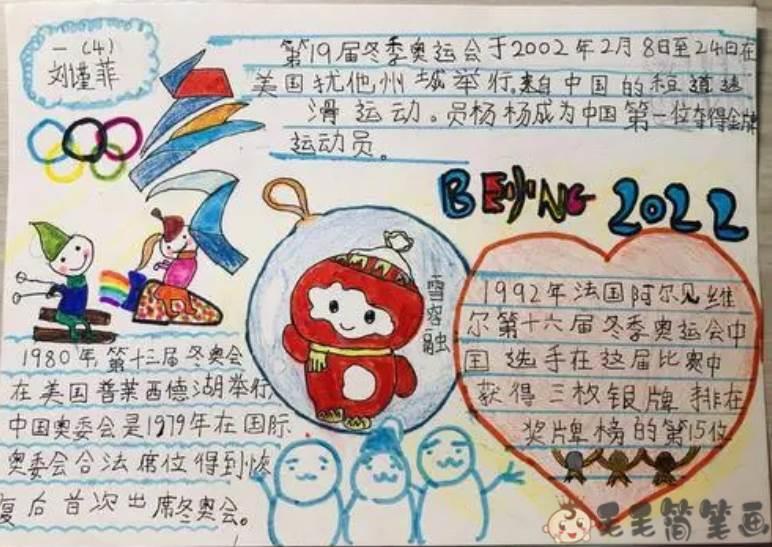 一(4)
刘瑾菲
第19届冬季奥运会于2002年2月8日至24日在
美国犹他州城举行。来自中国的短道速
滑运动。员杨杨成为中国第一位夺得金牌
运动员。
BEIJING 2022
雪容融
1992年法国阿尔贝维
尔第十六届冬季奥运会中
国选手在这届比赛中
获得三枚银牌排在
奖牌榜的第15位
1980年,第十三届冬奥会
在美国普莱西德湖举行,
中国奥委会是1979年在国际
奥委会合法席位得到恢
复后首次出席冬奥会。
毛毛简笔画